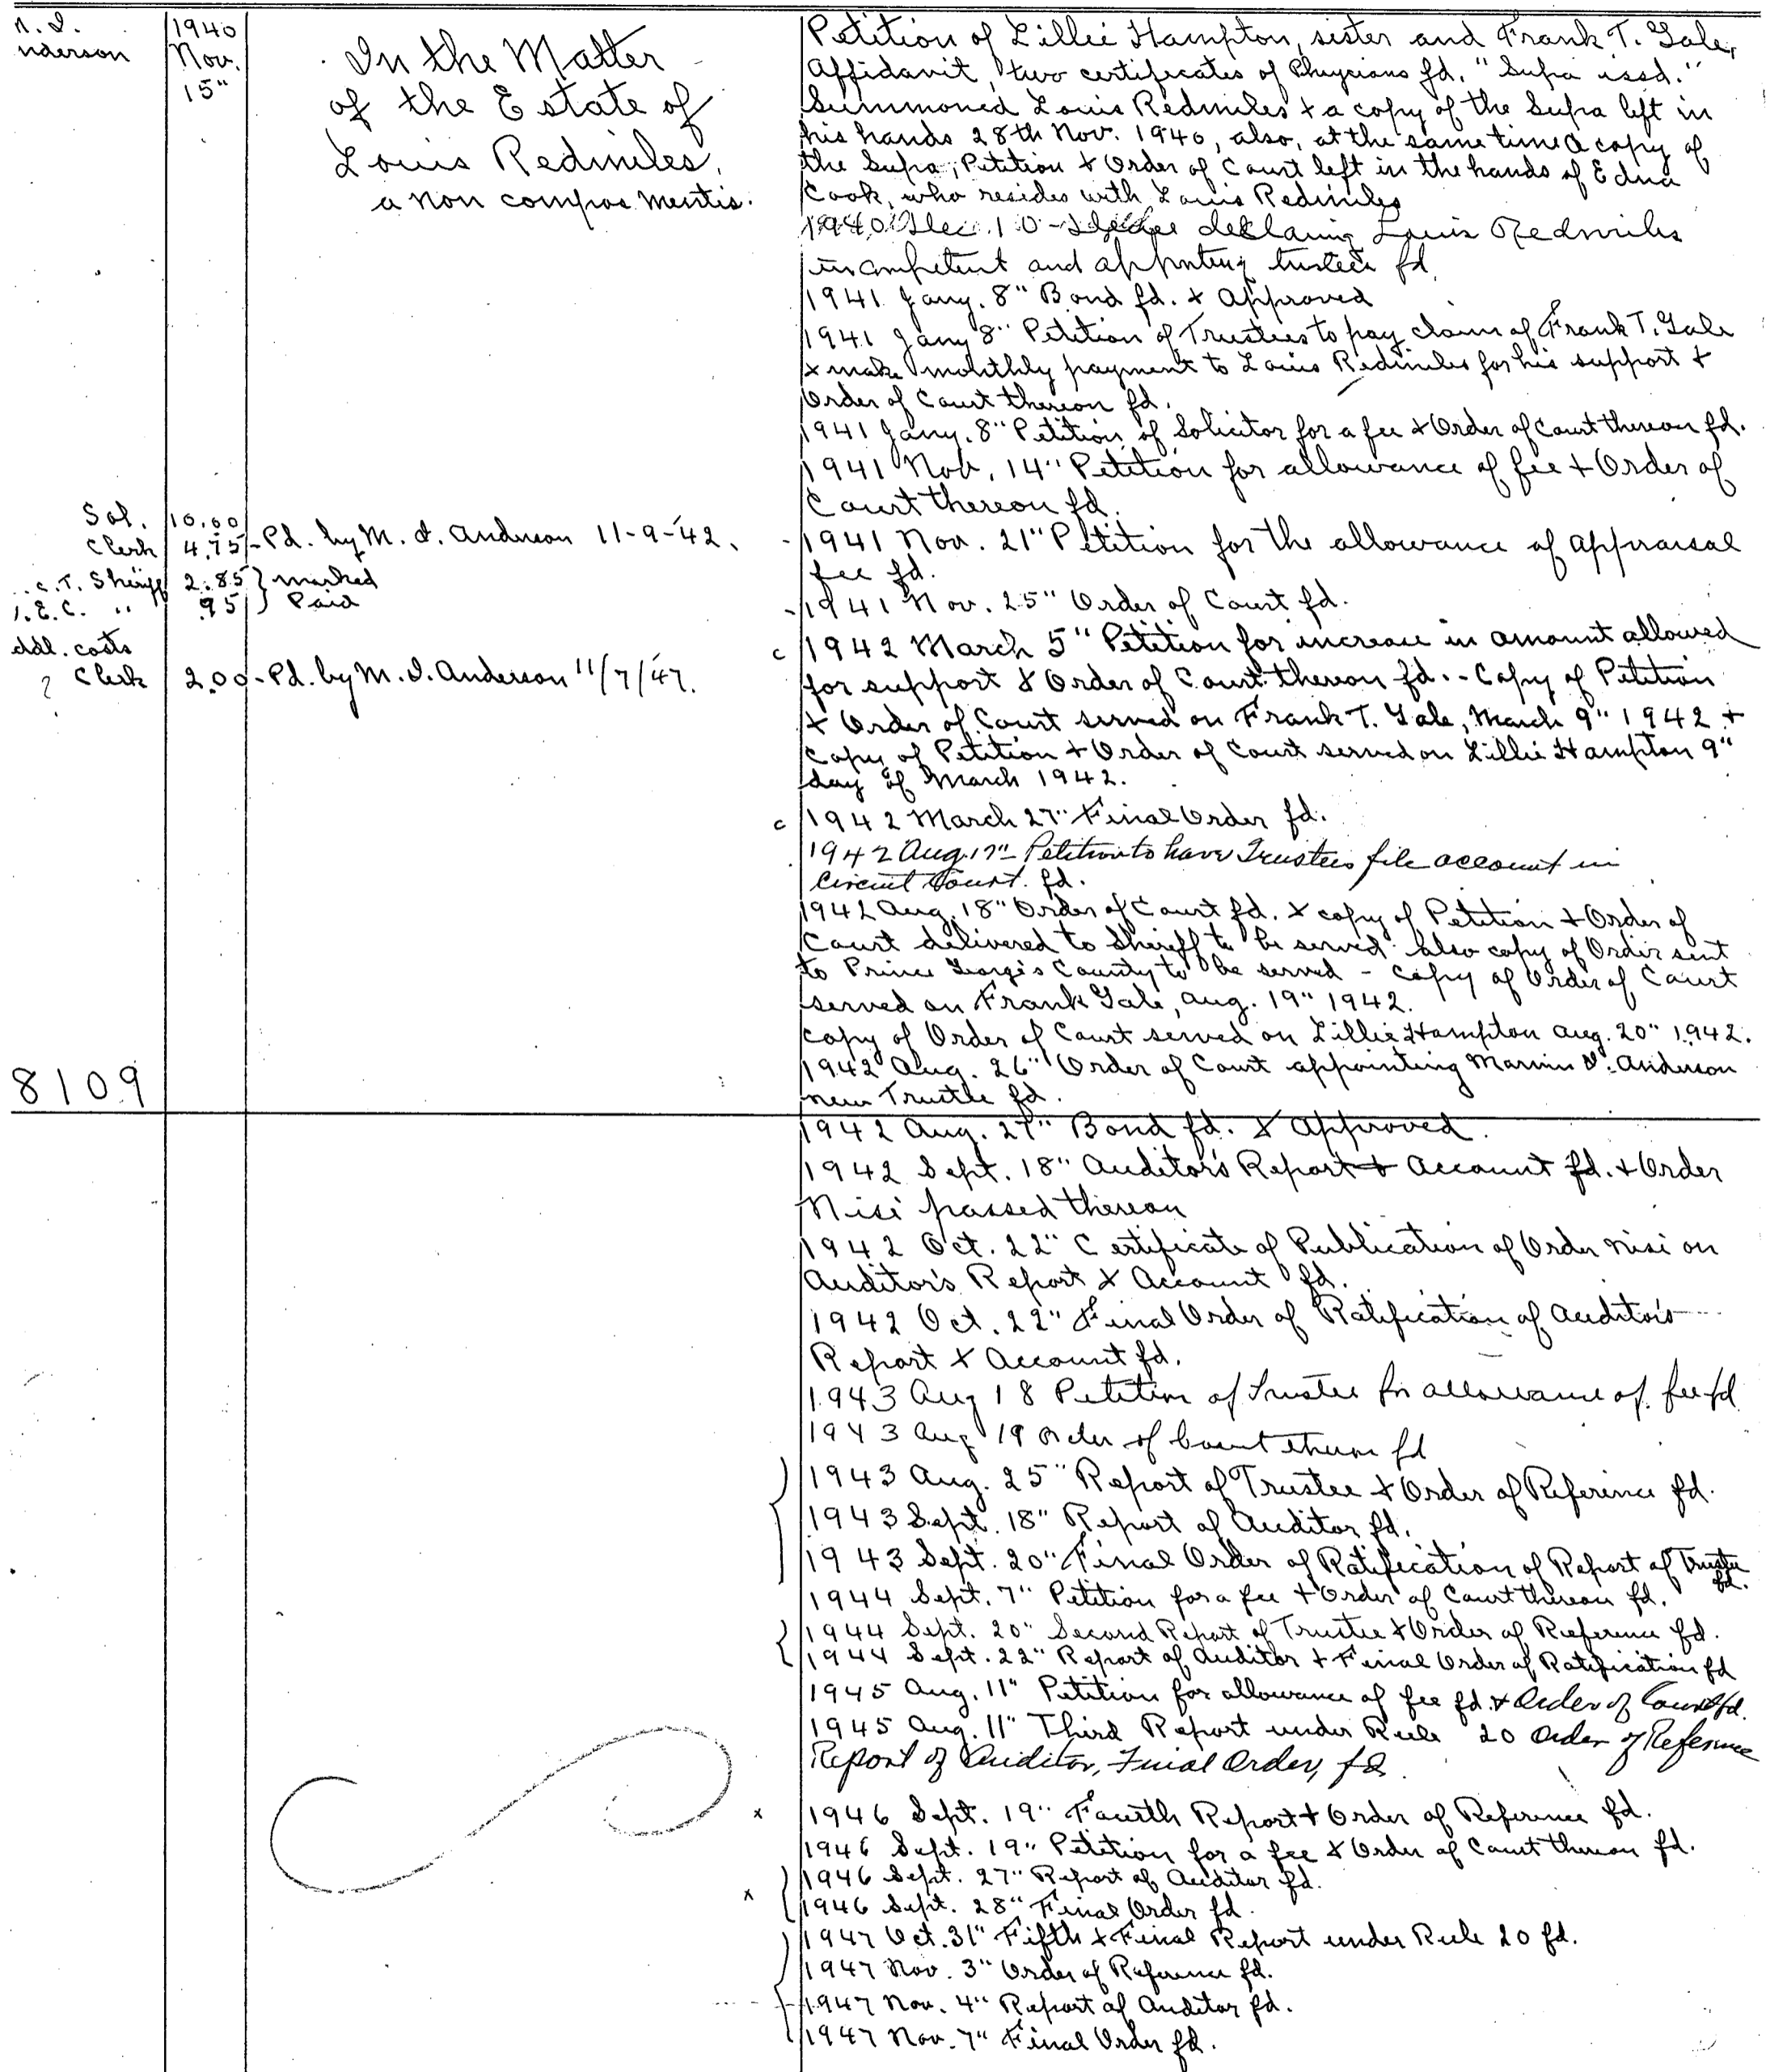 nderson
1940
Nov.
15"
In the Matter
of the Estate of
Louis Redmiles,
a non compos mentis.
Sol. 10.00
Clerk 4.75 - Pd. by M. I. Anderson 11-9-'42.
Sheriff 2.85 } marked
" .95 } Paid
ddl. costs
Clerk 2.00 - Pd. by M. I. Anderson 11/7/'47.
8109
Petition of Lillie Hampton, sister and Frank T. Gale,
Affidavit, two certificates of Physicians fd. "Supa issd."
Summoned Louis Redmiles & a copy of the Supa left in
his hands 28th Nov. 1940, also, at the same time a copy of
the Supa, Petition & Order of Court left in the hands of Edna
Cook, who resides with Louis Redmiles
1940 Dec. 10 - declaring Louis Redmiles
incompetent and appointing trustees fd.
1941 Jany. 8" Bond fd. & Approved
1941 Jany 8" Petition of Trustees to pay claim of Frank T. Gale
& make monthly payment to Louis Redmiles for his support &
Order of Court thereon fd.
1941 Jany. 8" Petition of Solicitor for a fee & Order of Court thereon fd.
1941 Nov. 14" Petition for allowance of fee & Order of
Court thereon fd.
-1941 Nov. 21" Petition for the allowance of appraisal
fee fd.
-1941 Nov. 25" Order of Court fd.
c 1942 March 5" Petition for increase in amount allowed
for support & Order of Court thereon fd. - Copy of Petition
& Order of Court served on Frank T. Gale, March 9" 1942 &
Copy of Petition & Order of Court served on Lillie Hampton 9"
day of March 1942.
c 1942 March 27" Final Order fd.
1942 Aug. 17" - Petition to have Trustees file account in
Circuit Court. fd.
1942 Aug. 18" Order of Court fd. & copy of Petition & Order of
Court delivered to Sheriff to be served also copy of Order sent
to Prince George's County to be served - copy of Order of Court
served on Frank Gale, Aug. 19" 1942.
Copy of Order of Court served on Lillie Hampton Aug. 20" 1942.
1942 Aug. 26" Order of Court appointing Marvin I. Anderson
new Trustee fd.
1942 Aug. 27" Bond fd. & Approved.
1942 Sept. 18" Auditor's Report & Account fd. & Order
Nisi passed thereon
1942 Oct. 22" Certificate of Publication of Order nisi on
Auditor's Report & Account fd.
1942 Oct. 22" Final Order of Ratification of Auditor's
Report & Account fd.
1943 Aug 18 Petition of Trustee for allowance of fee fd
1943 Aug 19 Order of Court thereon fd
1943 Aug. 25" Report of Trustee & Order of Reference fd.
1943 Sept. 18" Report of Auditor fd.
1943 Sept. 20" Final Order of Ratification of Report of Trustee
fd.
1944 Sept. 7" Petition for a fee & Order of Court thereon fd.
1944 Sept. 20" Second Report of Trustee & Order of Reference fd.
1944 Sept. 22" Report of Auditor & Final Order of Ratification fd
1945 Aug. 11" Petition for allowance of fee fd. & Order of Court fd.
1945 Aug. 11" Third Report under Rule 20 Order of Reference
Report of Auditor, Final Order, fd.
x 1946 Sept. 19" Fourth Report & Order of Reference fd.
1946 Sept. 19" Petition for a fee & Order of Court thereon fd.
1946 Sept. 27" Report of Auditor fd.
x 1946 Sept. 28" Final Order fd.
1947 Oct. 31" Fifth & Final Report under Rule 20 fd.
1947 Nov. 3" Order of Reference fd.
1947 Nov. 4" Report of Auditor fd.
1947 Nov. 7" Final Order fd.